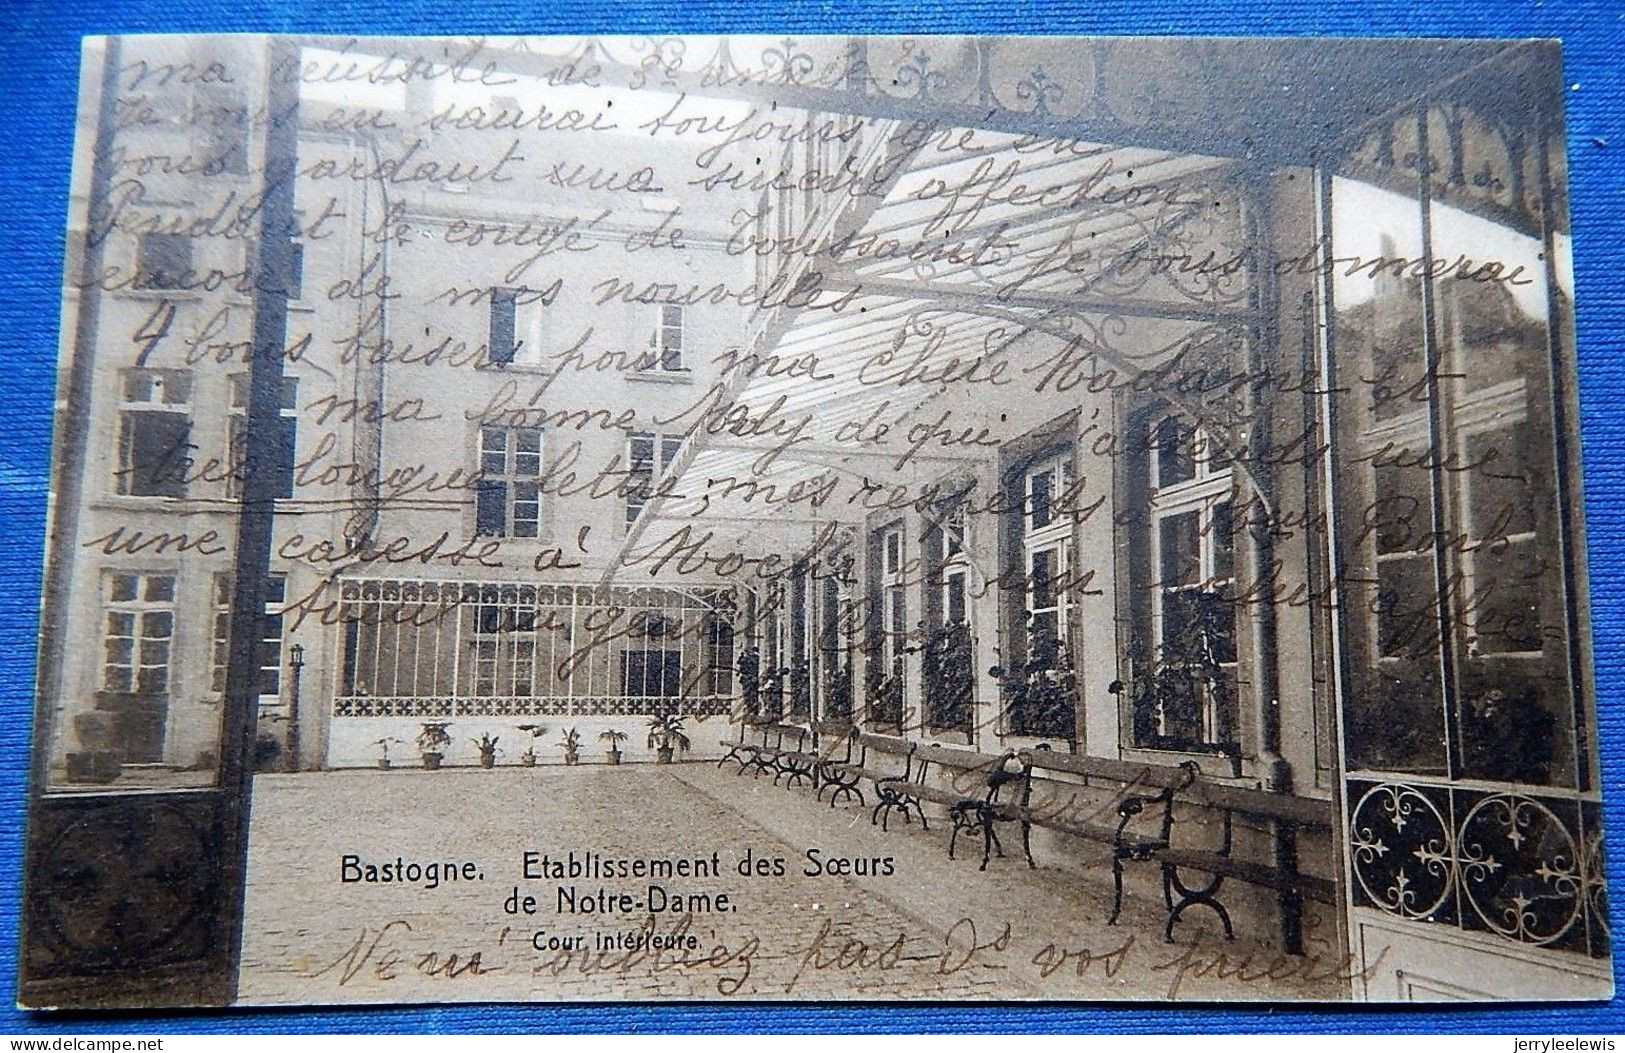 ma réussite de 3e année
Je vous en saurai toujours gré en
vous gardant une sincère affection.
Pendant le congé de Toussaint je vous donnerai
encore de mes nouvelles.
4 bons baisers pour ma Chère Madame et
ma bonne Nady de qui j'attends une
très longue lettre, mes respects à
une caresse à et un salut affec-
tueux au gentil
Berthe
Bastogne. Etablissement des Sœurs
de Notre-Dame.
Cour intérieure.
N'oubliez pas Ds vos prières
jerryleelewis